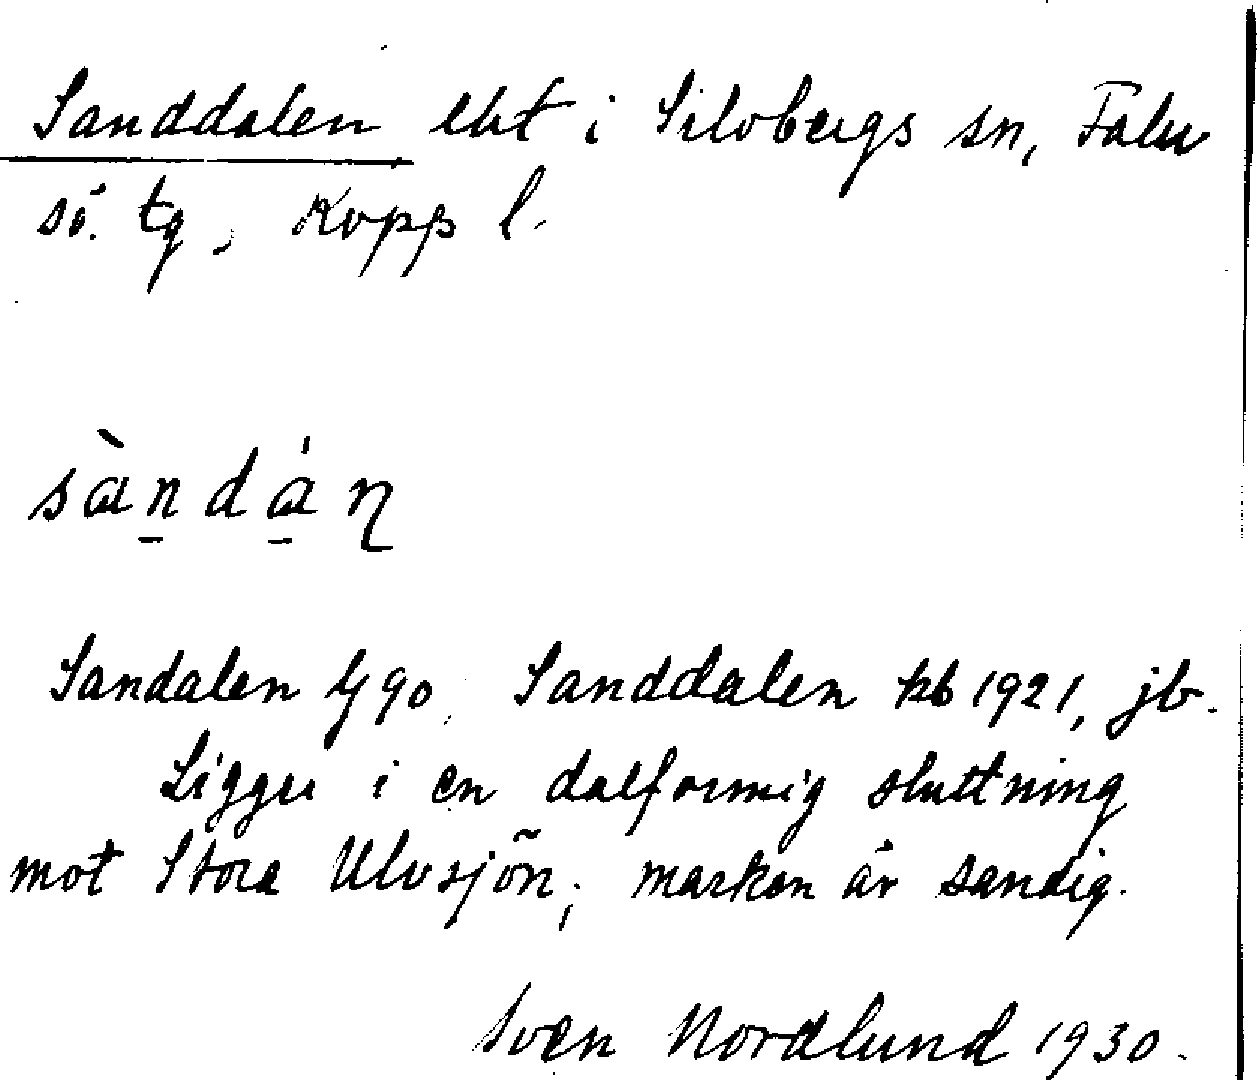 Sanddalen lht i Silvbergs sn, Falu
sö. tg, Kopp l.
sàndán
Sandalen Gj 90, Sanddalen kb 1921, jb.
Ligger i en dalformig sluttning
mot Stora Ulvsjön; marken är sandig.
Sven Nordlund 1930.